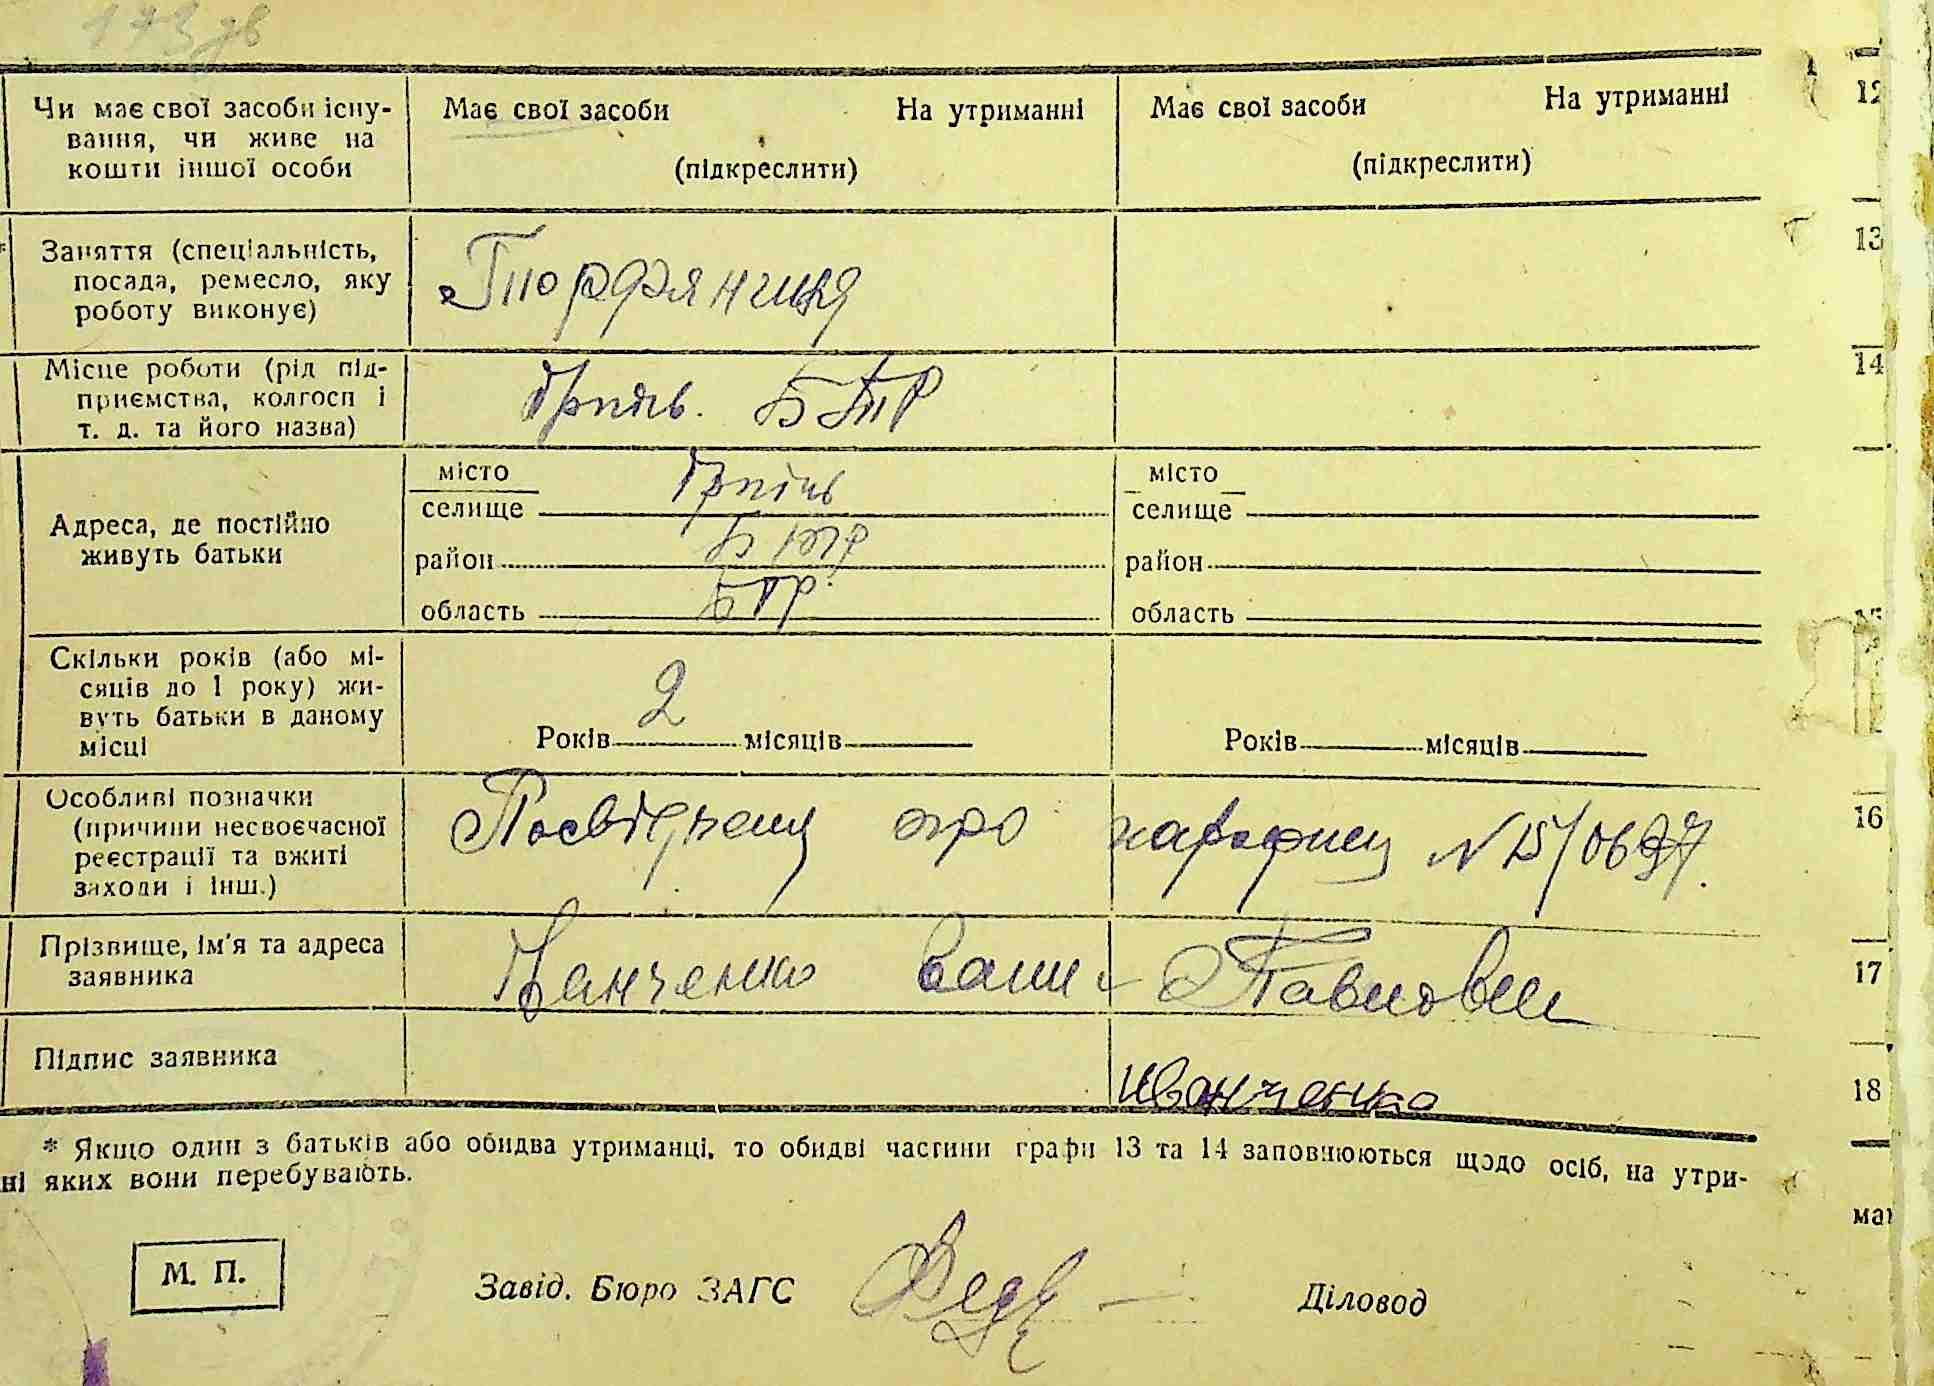 173 зв
Чи має свої засоби існу-
вання, чи живе на
кошти іншої особи
Має свої засоби На утриманні
(підкреслити)
Має свої засоби На утриманні
(підкреслити)
12
* Заняття (спеціальність,
посада, ремесло, яку
роботу виконує)
13
Місце роботи (рід під-
приємства, колгосп і
т. д. та його назва)
Ірпінь. БТР
14
Адреса, де постійно
живуть батьки
місто
селище Ірпінь
район БТР
область БТР
місто
селище
район
область
15
Скільки років (або мі-
сяців до 1 року) жи-
вуть батьки в даному
місці
Років 2 місяців
Років місяців
Особливі позначки
(причини несвоєчасної
реєстрації та вжиті
заходи і інш.)
про N 15/
16
Прізвище, ім'я та адреса
заявника
Іванченко Павлович
17
Підпис заявника
Иванченко
18
* Якщо один з батьків або обидва утриманці, то обидві частини графи 13 та 14 заповнюються щодо осіб, на утри-
ні яких вони перебувають.
ма
М. П.
Завід. Бюро ЗАГС
Діловод